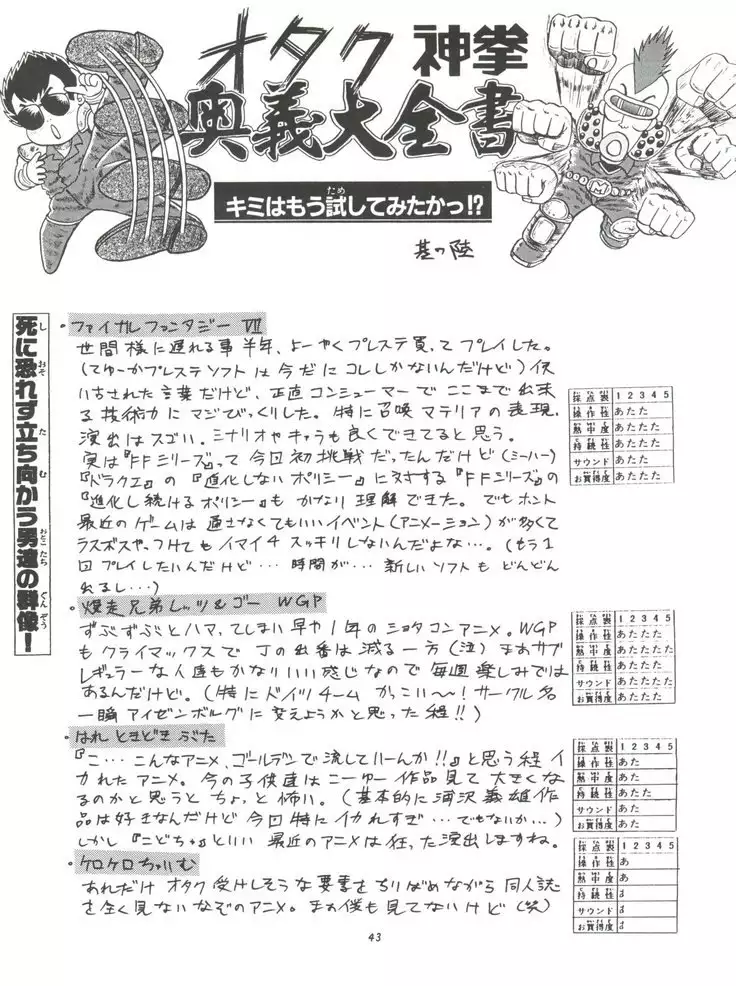 オタク神拳
奥義大全書
キミはもう試してみたかっ!?
其の陸
死に恐れず立ち向かう男達の群像！
・ファイナルファンタジー Ⅶ
世間様に遅れる事半年、よーやくプレステ買ってプレイした。
（てゆーかプレステソフトは今だにコレしかないんだけど）使
い古された言葉だけど、正直コンシューマーでここまで出来
る技術力にマジびっくりした。特に召喚マテリアの表現、
演出はスゴい。シナリオやキャラも良くできてると思う。
実は『FFシリーズ』って今回初挑戦だったんだけど（ミーハー）
『ドラクエ』の『進化しないポリシー』に対する『FFシリーズ』の
『進化し続けるポリシー』もかなり理解できた。でもホント
最近のゲームは通さなくてもいいイベント（アニメーション）が多くて
ラスボスやっつけてもイマイチスッキリしないんだよな…。（もう1
回プレイしたいんだけど…時間が…新しいソフトもどんどん
出るし…）
採点表 1 2 3 4 5
操作性 あたた
熱中度 あたたた
持続性 あたたた
サウンド あたた
お買得度 あたたた
・爆走兄弟レッツ&ゴー WGP
ずぶずぶとハマってしまい早や1年のショタコンアニメ。WGP
もクライマックスで Jの出番は減る一方（泣）まぁサブ
レギュラーな人達もかなりいい感じなので毎週楽しみでは
あるんだけど。（特にドイツチームかっこい〜！サークル名
一瞬アイゼンボルグに変えようかと思った程!!）
採点表 1 2 3 4 5
操作性 あたたた
熱中度 あたたたた
持続性 あたたた
サウンド あたたたた
お買得度 あたたた
・はれときどきぶた
『こ…こんなアニメ、ゴールデンで流していーんか!!』と思う程イ
カれたアニメ。今の子供達はこーゆー作品見て大きくな
るのかと思うとちょっと怖い。（基本的に浦沢義雄作
品は好きなんだけど今回特にイカれすぎ…でもないか…）
しかし『こどちゃ』といい最近のアニメは狂った演出しますね。
採点表 1 2 3 4 5
操作性 あた
熱中度 あた
持続性 あたた
サウンド あた
お買得度 あた
・ケロケロちゃいむ
あれだけオタク受けしそうな要素をちりばめながら同人誌
を全く見ないなぞのアニメ。まぁ僕も見てないけど（笑）
採点表 1 2 3 4 5
操作性 あ
熱中度 あ
持続性
サウンド
お買得度
43